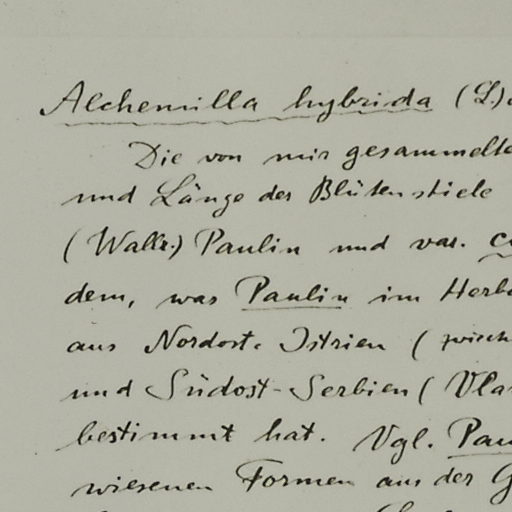 Alchemilla hybrida (L.)
Die von mir gesammelte
und Länge der Blütenstiele
(Wallr.) Paulin und var.
dem, was Paulin im Herb
aus Nordost-Istrien (zwisch
und Südost-Serbien (Vla
bestimmt hat. Vgl. Pau
wiesenen Formen aus der G